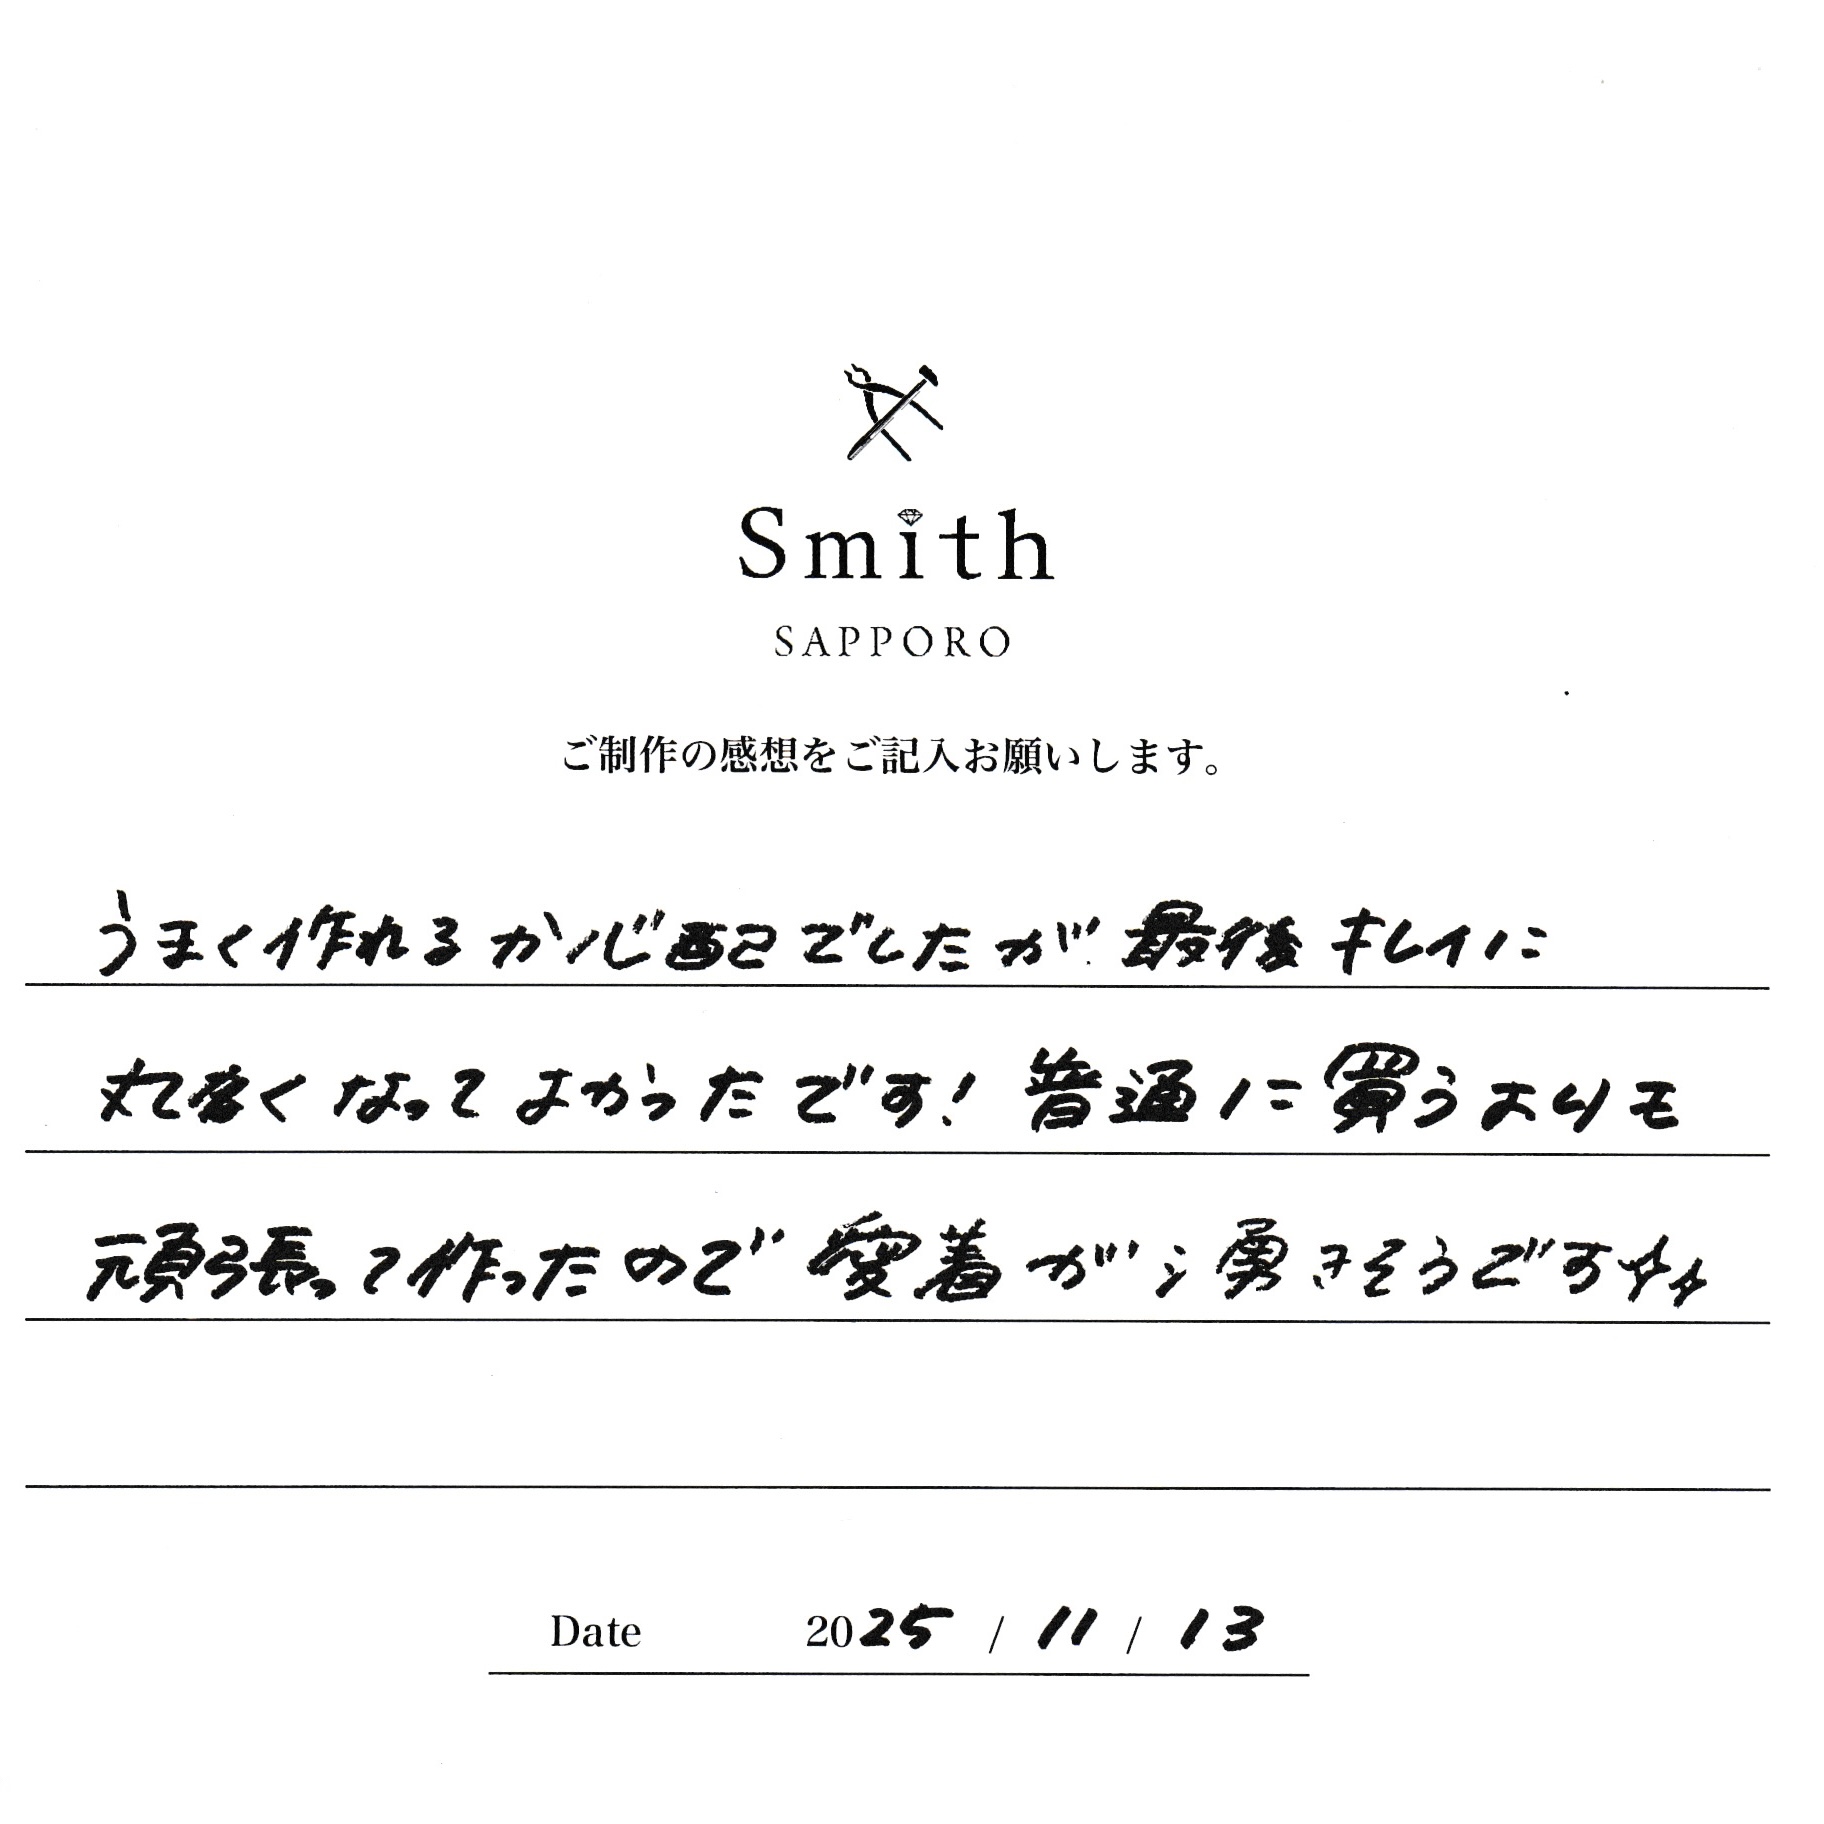 Smith
SAPPORO
ご制作の感想をご記入お願いします。
うまく作れるか心配でしたが最後キレイに
丸くなってよかったです! 普通に買うよりも
頑張って作ったので愛着が湧きそうです☆☆
Date 2025 / 11 / 13